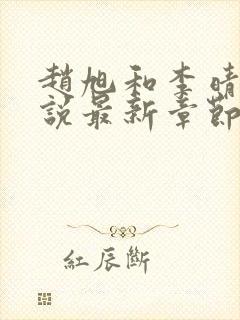 趙旭和李晴
說最新章節
紅辰斷